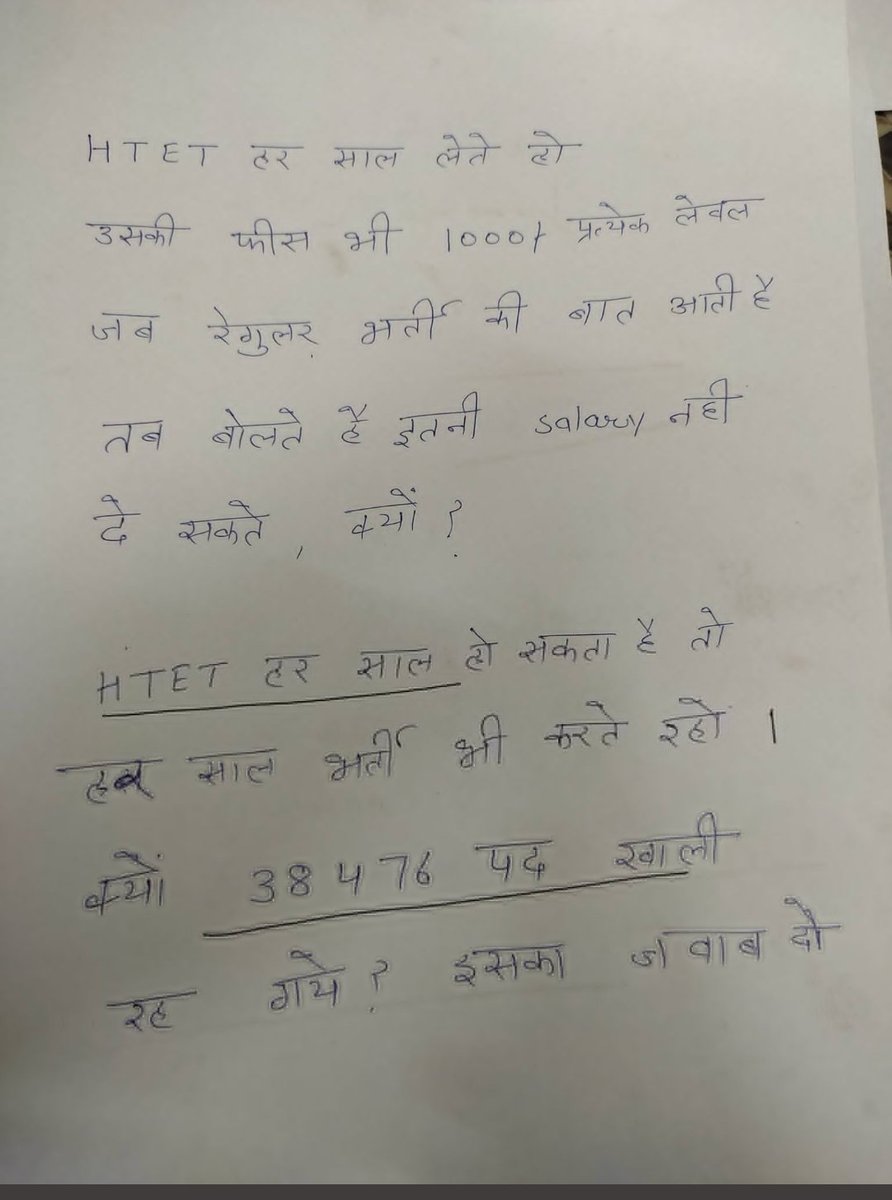 HTET हर साल लेते हो
उसकी फीस भी 1000/ प्रत्येक लेवल
जब रेगुलर भर्ती की बात आती है
तब बोलते है इतनी salary नही
दे सकते, क्यों?
HTET हर साल हो सकता है तो
हर साल भर्ती भी करते रहो ।
क्यों 38476 पद खाली
रह गये? इसका जवाब दो